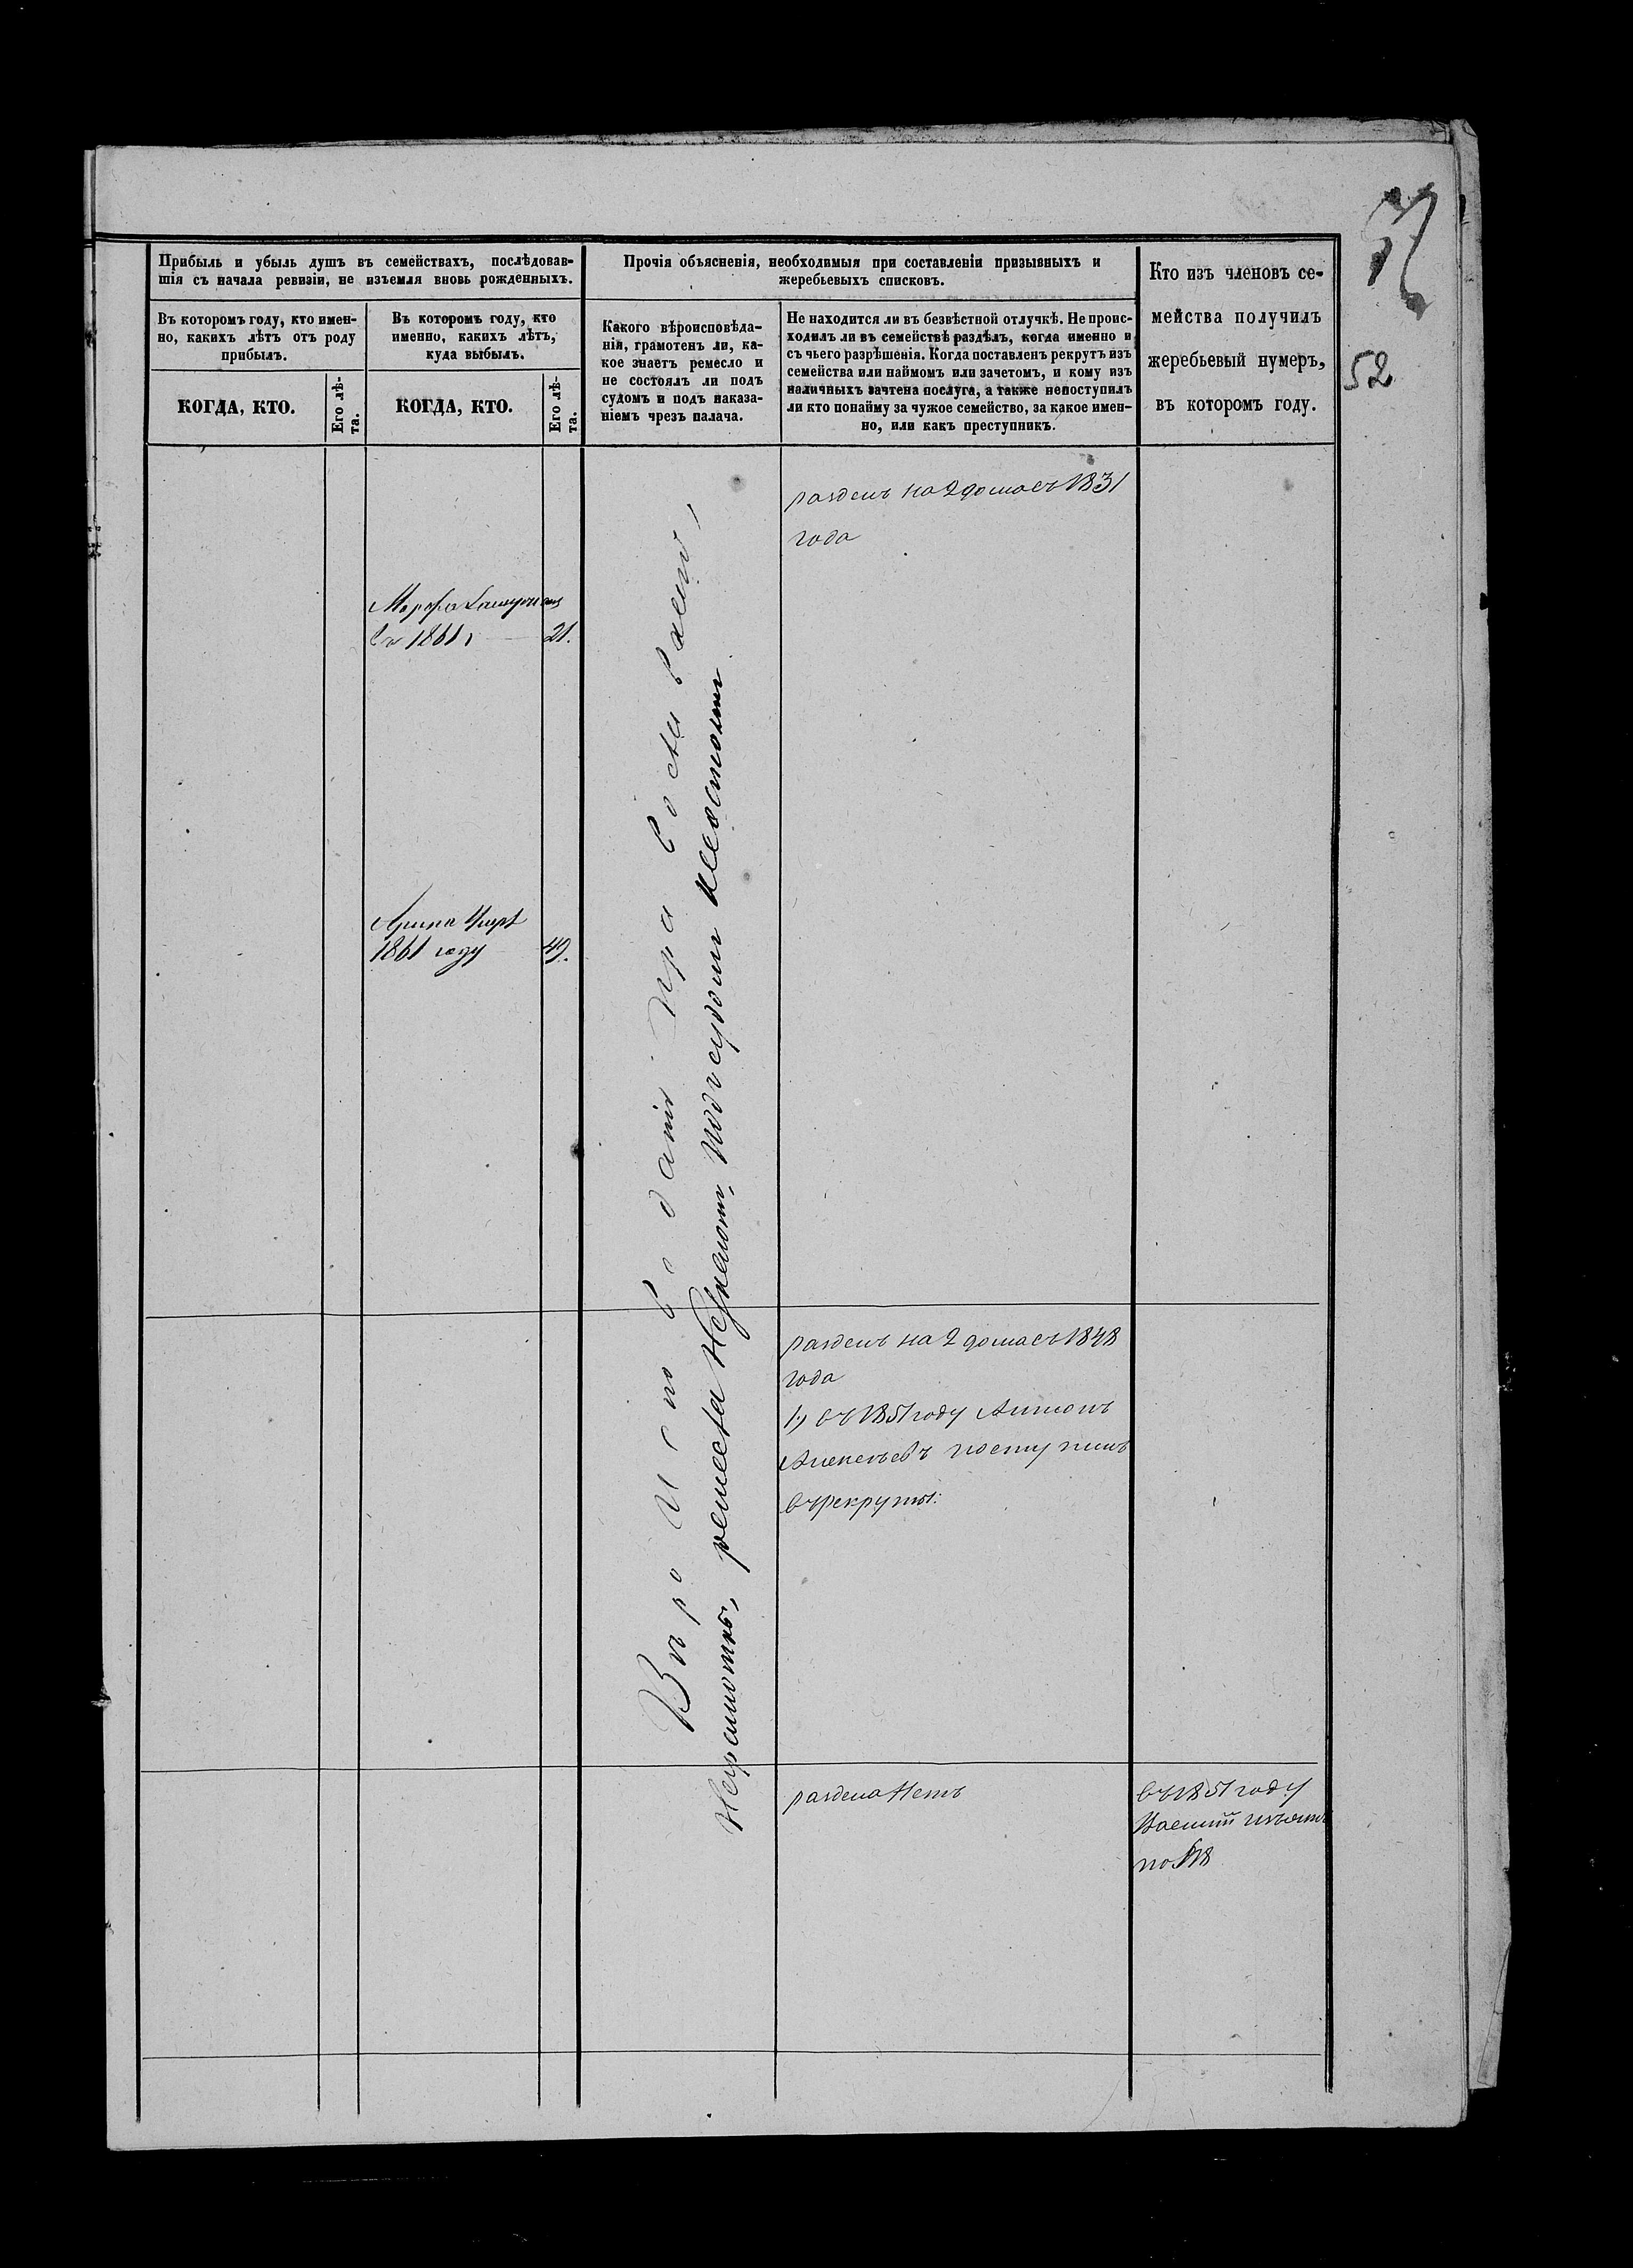 52
Прибыль и убыль душъ въ семействахъ, послѣдовав-
шія съ начала ревизіи, не изъемля вновь рожденныхъ.
Въ которомъ году, кто имен-
но, какихъ лѣтъ отъ роду
прибылъ.
КОГДА, КТО.
Его лѣ-
та.
Въ которомъ году, кто
именно, какихъ лѣтъ,
куда выбылъ.
КОГДА, КТО.
Его лѣ-
та.
Прочія объясненія, необходимыя при составленіи призывныхъ и
жеребьевыхъ списковъ.
Какого вѣроисповѣда-
нія, грамотенъ ли, ка-
кое знаетъ ремесло и
не состоялъ ли подъ
судомъ и подъ наказа-
ніемъ чрезъ палача.
Не находится ли въ безвѣстной отлучкѣ. Не проис-
ходилъ ли въ семействѣ раздѣлъ, когда именно и
съ чьего разрѣшенія. Когда поставленъ рекрутъ изъ
семейства или наймомъ или зачетомъ, и кому изъ
наличныхъ зачтена послуга, а также непоступилъ
ли кто понайму за чужое семейство, за какое имен-
но, или какъ преступникъ.
Кто изъ членовъ се-
мейства получилъ
жеребьевый нумеръ,
въ которомъ году.
разделъ на 2 дома съ 1831
года
Марфа
въ 1861 г 21.
Арина
1861 году 49.
Вѣроисповѣданія православнаго,
Неграмотны, ремесла Незнаютъ, подъ судомъ несостояли
разделъ на 2 дома съ 1848
года
1) въ 1851 году Антонъ
Алексѣевъ поступилъ
въ рекруты.
раздела Нетъ
въ 1851 году
Василий
по № 18